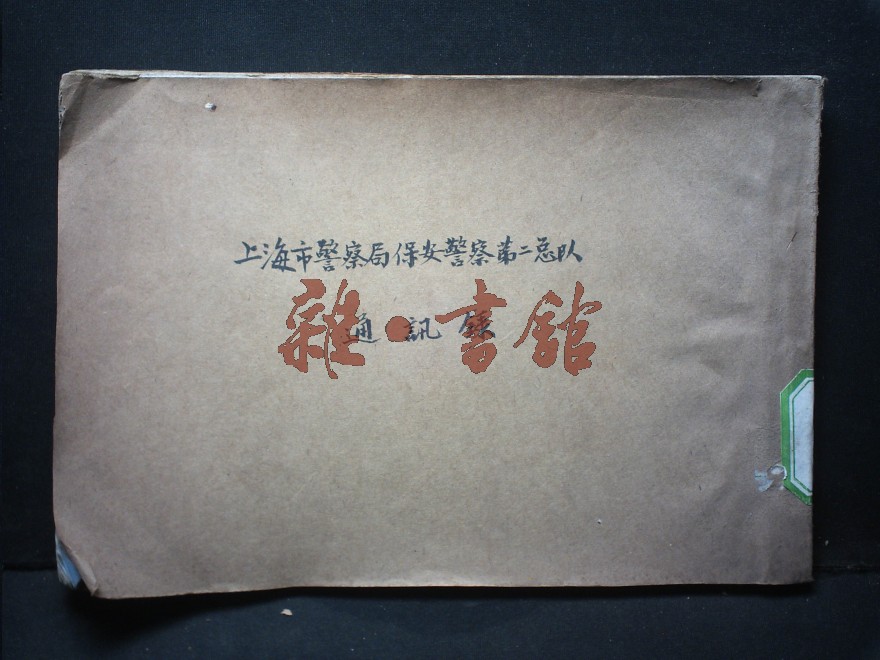 上海市警察局保安警察第二总队
通訊錄
雜·書館